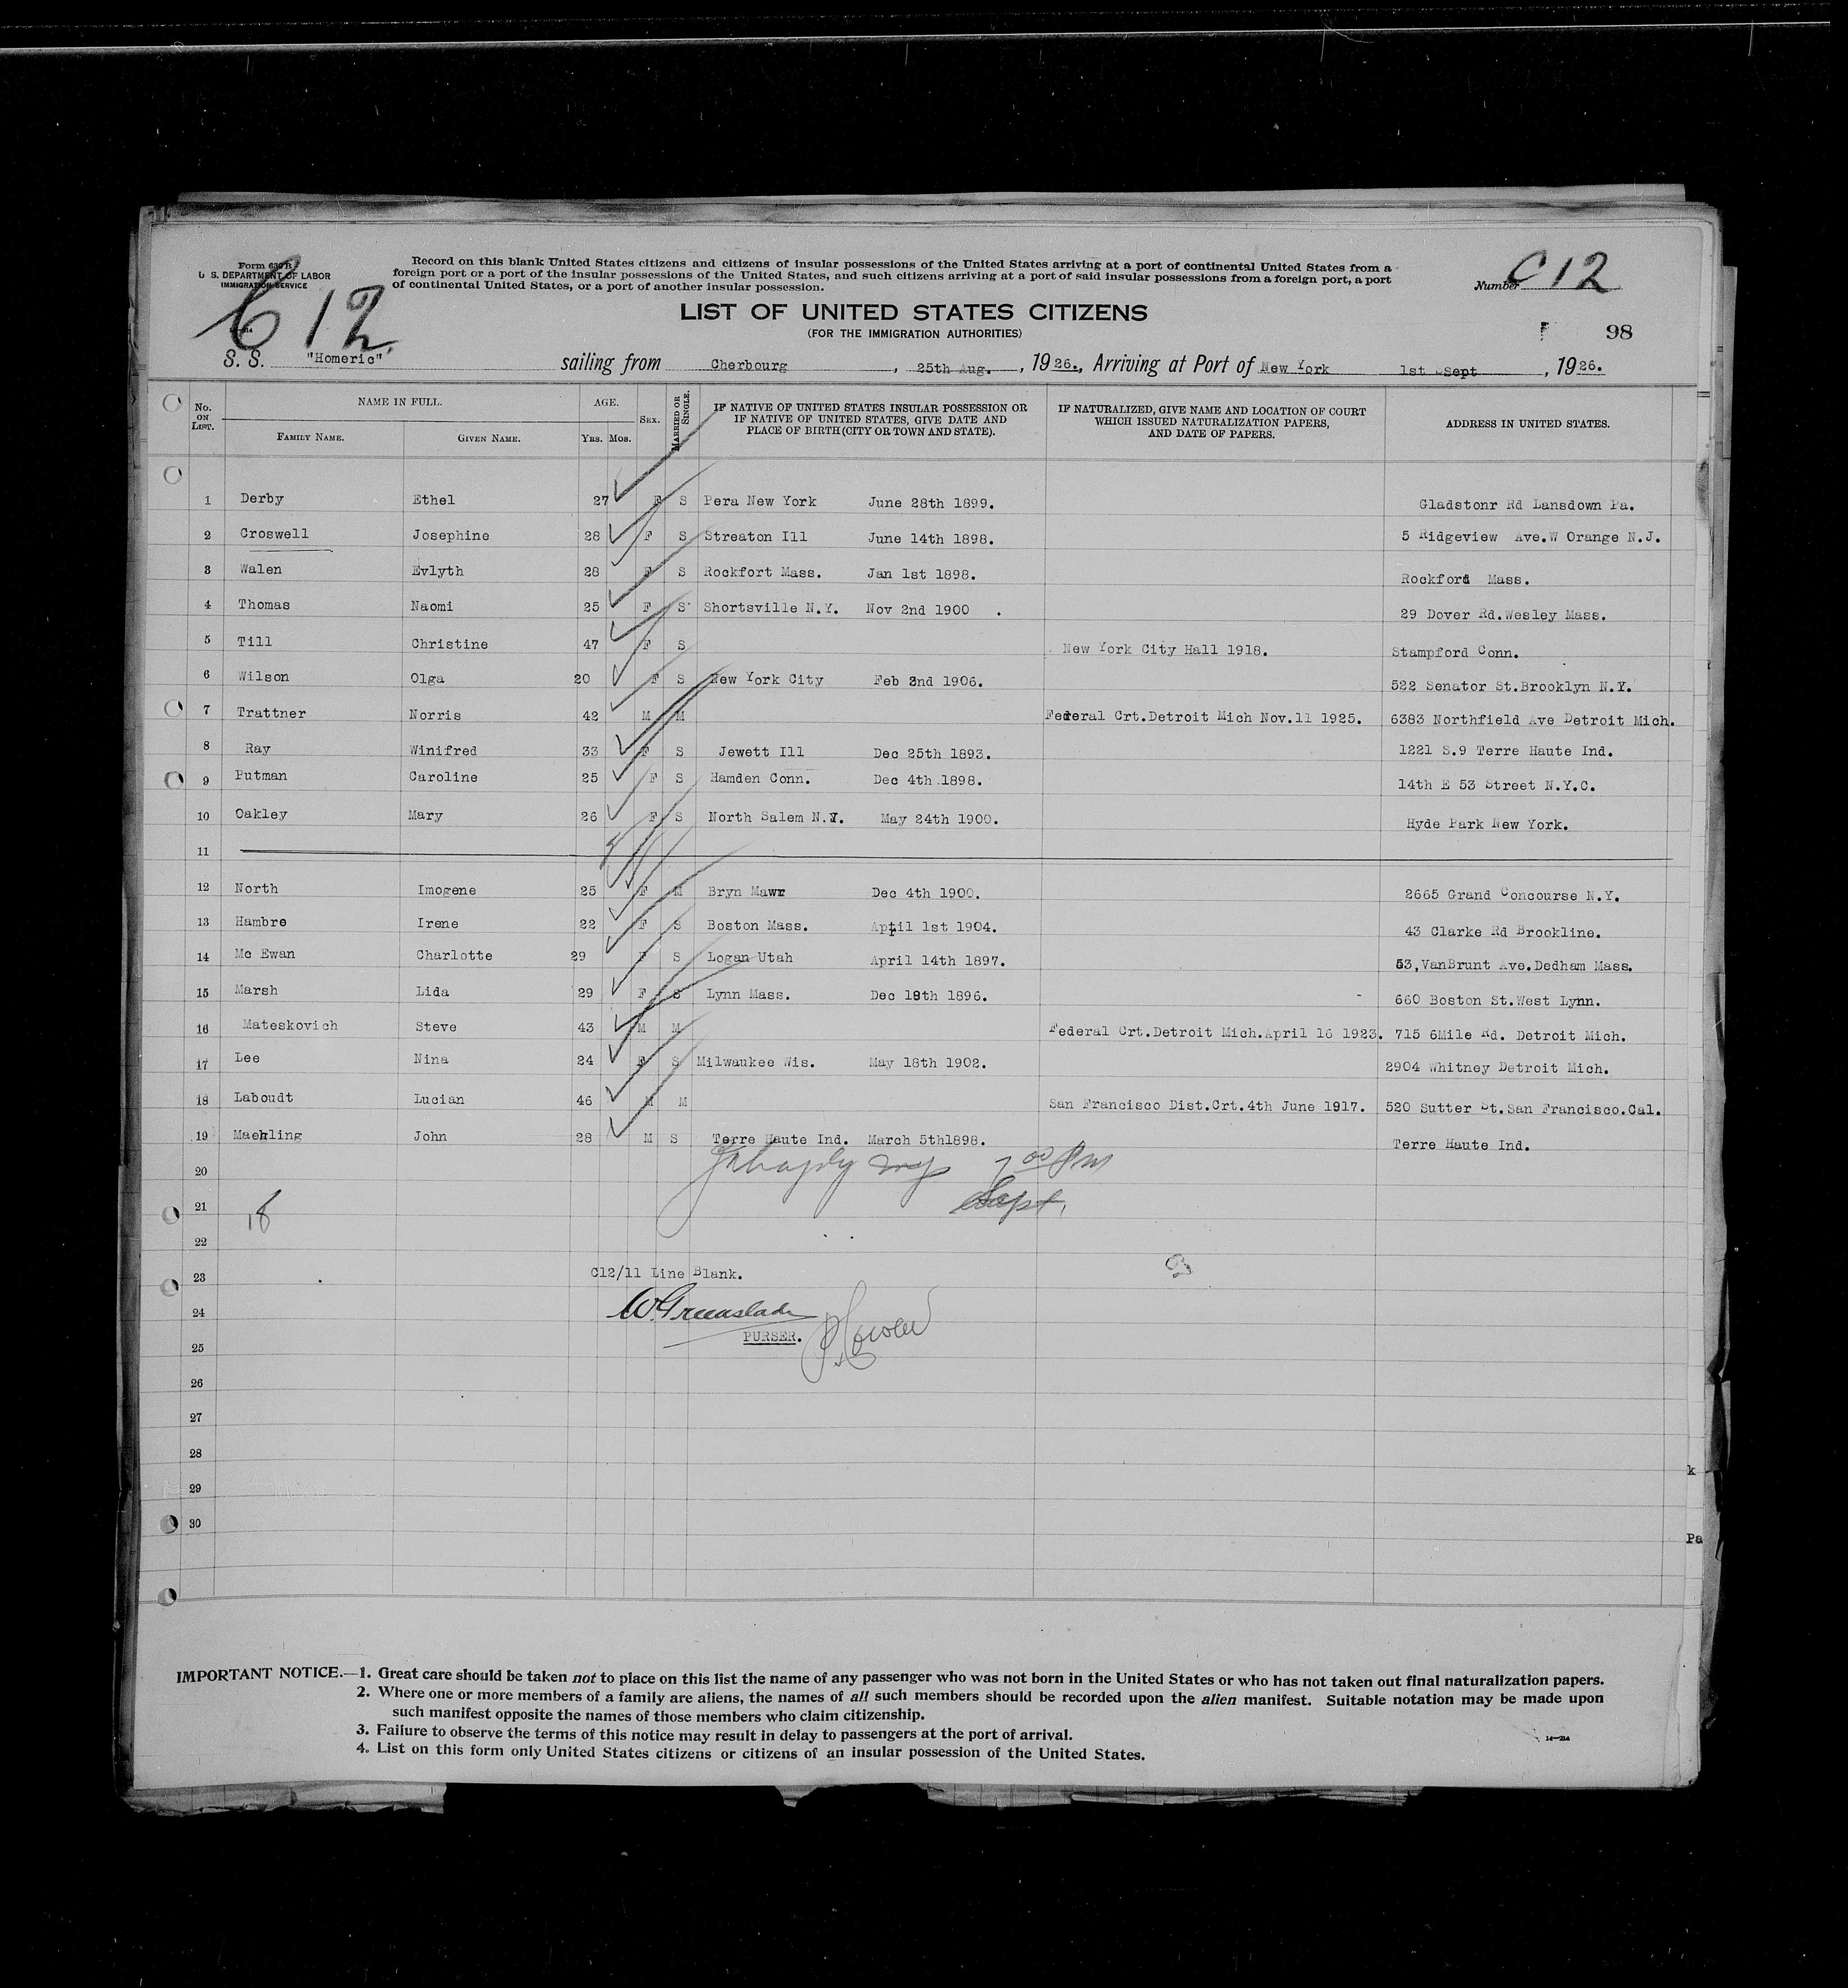 Form 630 B
U. S. DEPARTMENT OF LABOR
IMMIGRATION SERVICE
Record on this blank United States citizens and citizens of insular possessions of the United States arriving at a port of continental United States from a
foreign port or a port of the insular possessions of the United States, and such citizens arriving at a port of said insular possessions from a foreign port, a port
of continental United States, or a port of another insular possession.
Number C 12
C 12
LIST OF UNITED STATES CITIZENS
(FOR THE IMMIGRATION AUTHORITIES)
98
S. S. "Homeric" sailing from Cherbourg, 25th Aug., 1926., Arriving at Port of New York 1st Sept, 1926.
No. ON LIST. NAME IN FULL. FAMILY NAME. GIVEN NAME. AGE. YRS. MOS. SEX. MARRIED OR SINGLE. IF NATIVE OF UNITED STATES INSULAR POSSESSION OR IF NATIVE OF UNITED STATES, GIVE DATE AND PLACE OF BIRTH (CITY OR TOWN AND STATE). IF NATURALIZED, GIVE NAME AND LOCATION OF COURT WHICH ISSUED NATURALIZATION PAPERS, AND DATE OF PAPERS. ADDRESS IN UNITED STATES.
1 Derby Ethel 27 F S Pera New York June 28th 1899. Gladstonr Rd Lansdown Pa.
2 Croswell Josephine 28 F S Streaton Ill June 14th 1898. 5 Ridgeview Ave.W Orange N.J.
3 Walen Evlyth 28 F S Rockfort Mass. Jan 1st 1898. Rockford Mass.
4 Thomas Naomi 25 F S Shortsville N.Y. Nov 2nd 1900 . 29 Dover Rd.Wesley Mass.
5 Till Christine 47 F S New York City Hall 1918. Stampford Conn.
6 Wilson Olga 20 F S New York City Feb 2nd 1906. 522 Senator St.Brooklyn N.Y.
7 Trattner Norris 42 M M Federal Crt.Detroit Mich Nov.11 1925. 6383 Northfield Ave Detroit Mich.
8 Ray Winifred 33 F S Jewett Ill Dec 25th 1893. 1221 S.9 Terre Haute Ind.
9 Putman Caroline 25 F S Hamden Conn. Dec 4th 1898. 14th E 53 Street N.Y.C.
10 Oakley Mary 26 F S North Salem N.Y. May 24th 1900. Hyde Park New York.
11
12 North Imogene 25 F M Bryn Mawr Dec 4th 1900. 2665 Grand Concourse N.Y.
13 Hambre Irene 22 F S Boston Mass. April 1st 1904. 43 Clarke Rd Brookline.
14 Mc Ewan Charlotte 29 F S Logan Utah April 14th 1897. 53,VanBrunt Ave.Dedham Mass.
15 Marsh Lida 29 F S Lynn Mass. Dec 18th 1896. 660 Boston St.West Lynn.
16 Mateskovich Steve 43 M M Federal Crt.Detroit Mich.April 16 1923. 715 6Mile Rd. Detroit Mich.
17 Lee Nina 24 F S Milwaukee Wis. May 18th 1902. 2904 Whitney Detroit Mich.
18 Laboudt Lucian 46 M M San Francisco Dist.Crt.4th June 1917. 520 Sutter St.San Francisco.Cal.
19 Maehling John 28 M S Terre Haute Ind. March 5th1898. Terre Haute Ind.
20 7 00 Pm
21 18 Sept.
22
23 C12/11 Line Blank.
24 W. Greenslade
PURSER.
25
26
27
28
k
29
30
Pa
IMPORTANT NOTICE.—1. Great care should be taken not to place on this list the name of any passenger who was not born in the United States or who has not taken out final naturalization papers.
2. Where one or more members of a family are aliens, the names of all such members should be recorded upon the alien manifest. Suitable notation may be made upon
such manifest opposite the names of those members who claim citizenship.
3. Failure to observe the terms of this notice may result in delay to passengers at the port of arrival.
4. List on this form only United States citizens or citizens of an insular possession of the United States.
14—214